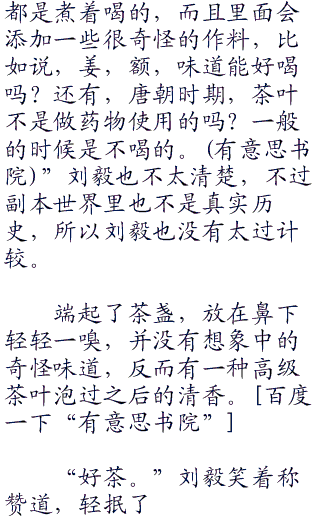 都是煮着喝的，而且里面会
添加一些很奇怪的作料，比
如说，姜，额，味道能好喝
吗？还有，唐朝时期，茶叶
不是做药物使用的吗？一般
的时候是不喝的。(有意思书
院)”刘毅也不太清楚，不过
副本世界里也不是真实历
史，所以刘毅也没有太过计
较。
端起了茶盏，放在鼻下
轻轻一嗅，并没有想象中的
奇怪味道，反而有一种高级
茶叶泡过之后的清香。[百度
一下“有意思书院”]
“好茶。”刘毅笑着称
赞道，轻抿了